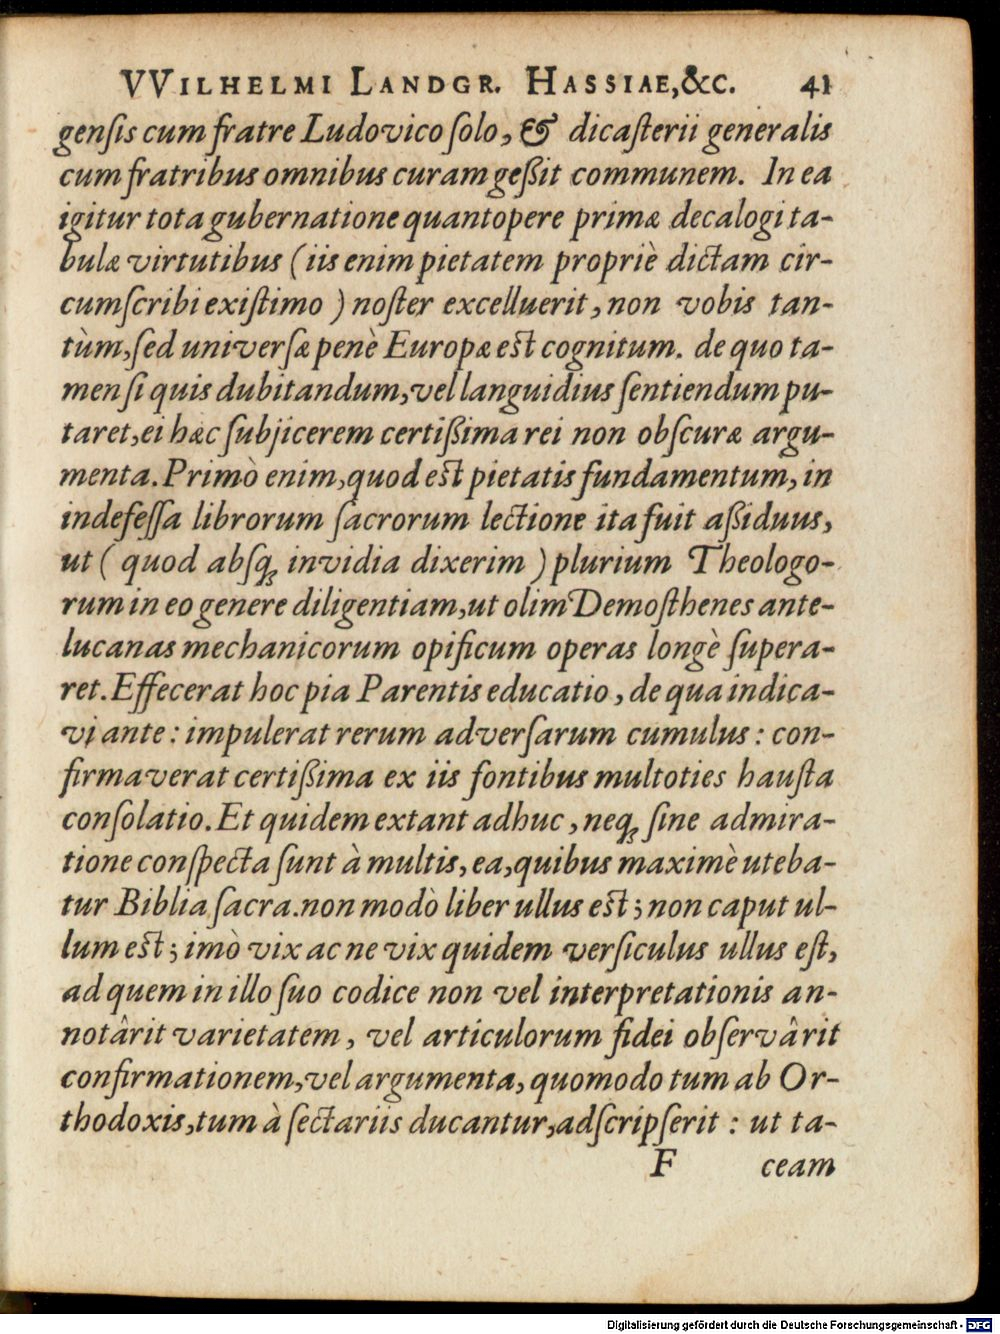 VVILHELMI LANDGR. HASSIAE,&C. 41
genſis cum fratre Ludovico ſolo, & dicaſterii generalis
cum fratribus omnibus curam geßit communem. In ea
igitur tota gubernatione quantopere primæ decalogi ta-
bulæ virtutibus (iis enim pietatem propriè dictam cir-
cumſcribi exiſtimo ) noſter excelluerit, non vobis tan-
tùm, ſed univerſæ penè Europæ est cognitum. de quo ta-
men ſi quis dubitandum, vel languidius ſentiendum pu-
taret, ei hæc ſubjicerem certißima rei non obſcuræ argu-
menta. Primò enim, quod est pietatis fundamentum, in
indefeſſa librorum ſacrorum lectione ita fuit aßiduus,
ut ( quod abſq; invidia dixerim ) plurium Theologo-
rum in eo genere diligentiam, ut olim Demoſthenes ante-
lucanas mechanicorum opificum operas longè ſupera-
ret. Effecerat hoc pia Parentis educatio, de qua indica-
vi ante: impulerat rerum adverſarum cumulus: con-
firmaverat certißima ex iis fontibus multoties hauſta
conſolatio. Et quidem extant adhuc, neq; ſine admira-
tione conſpecta ſunt à multis, ea, quibus maximè uteba-
tur Biblia ſacra. non modò liber ullus est; non caput ul-
lum est; imò vix ac ne vix quidem verſiculus ullus eſt,
ad quem in illo ſuo codice non vel interpretationis an-
notârit varietatem, vel articulorum fidei obſervârit
confirmationem, vel argumenta, quomodo tum ab Or-
thodoxis, tum à ſectariis ducantur, adſcripſerit : ut ta-
F ceam
Digitalisierung gefördert durch die Deutsche Forschungsgemeinschaft - DFG